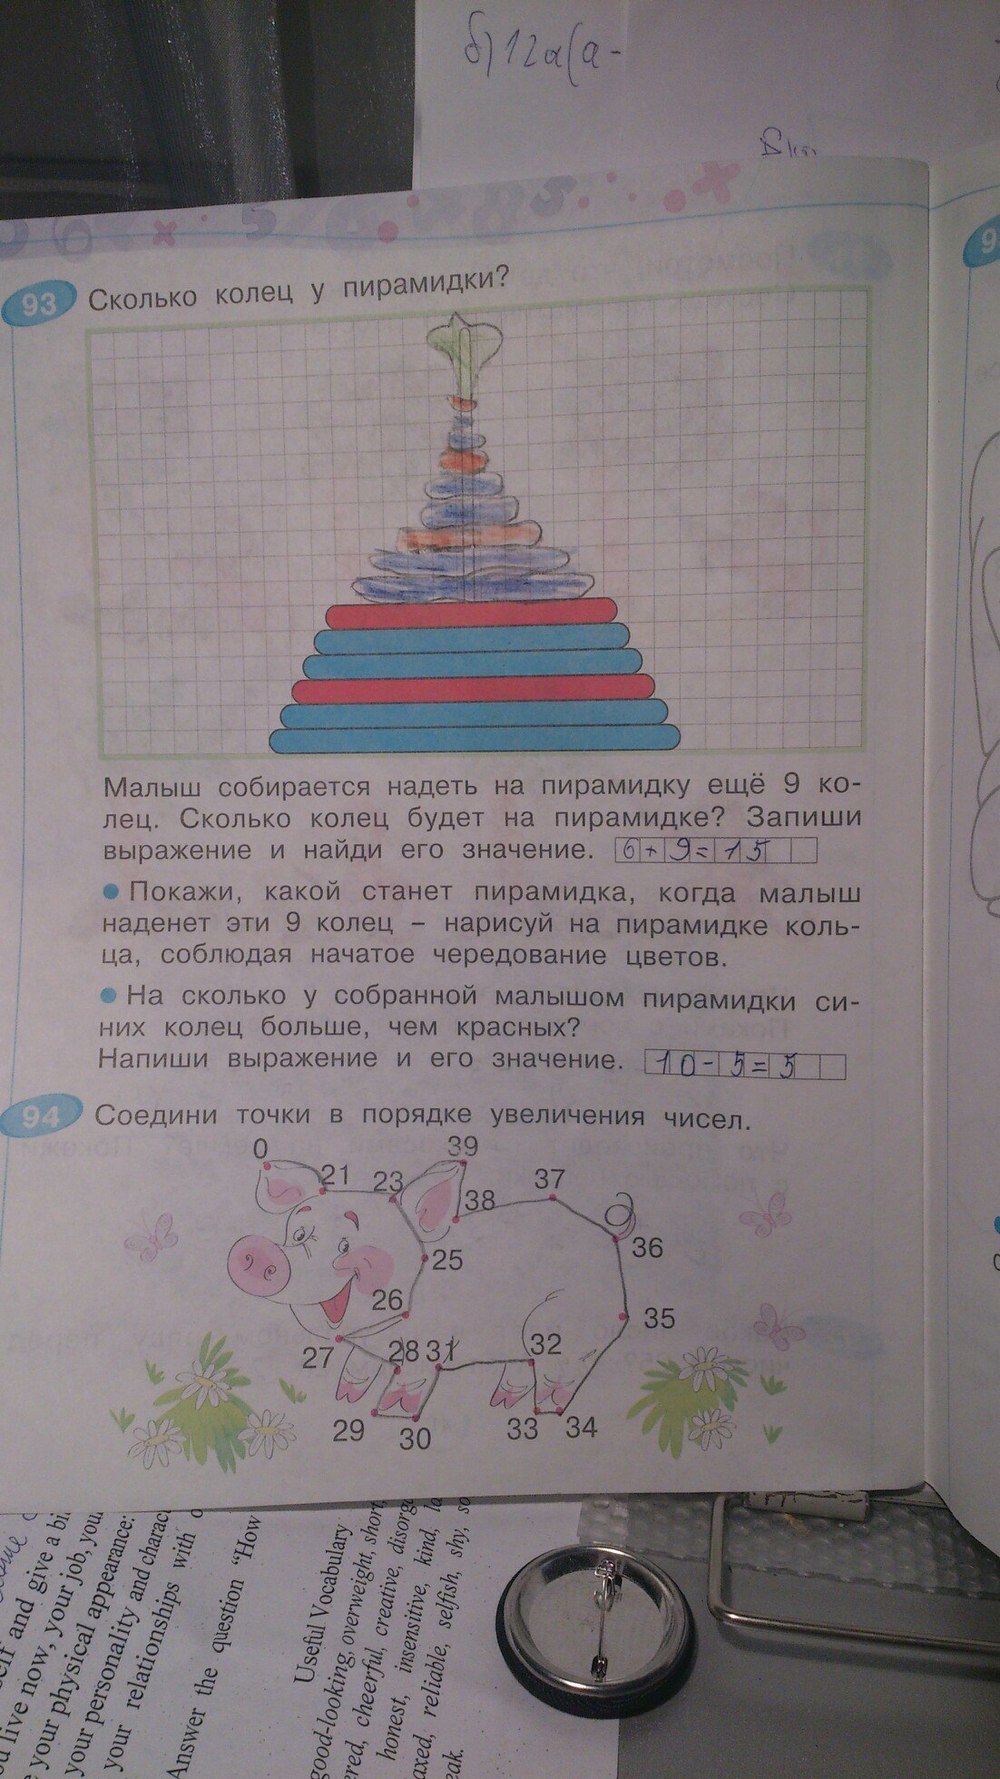 б) 12a(a-
93 Сколько колец у пирамидки?
Малыш собирается надеть на пирамидку ещё 9 ко-
лец. Сколько колец будет на пирамидке? Запиши
выражение и найди его значение. 6+9=15
• Покажи, какой станет пирамидка, когда малыш
наденет эти 9 колец – нарисуй на пирамидке коль-
ца, соблюдая начатое чередование цветов.
• На сколько у собранной малышом пирамидки си-
них колец больше, чем красных?
Напиши выражение и его значение. 10-5=5
94 Соедини точки в порядке увеличения чисел.
0 21 23 39
38 37
25 36
26 35
27 28 31 32
29 30 33 34
self and give a bi
live now, your job, you
your physical appearance:
your personality and charac
your relationships with
Answer the question "How
Useful Vocabulary
good-looking, overweight, short,
cheerful, creative, disorg
honest, insensitive, kind, la
reliable, selfish, shy, so